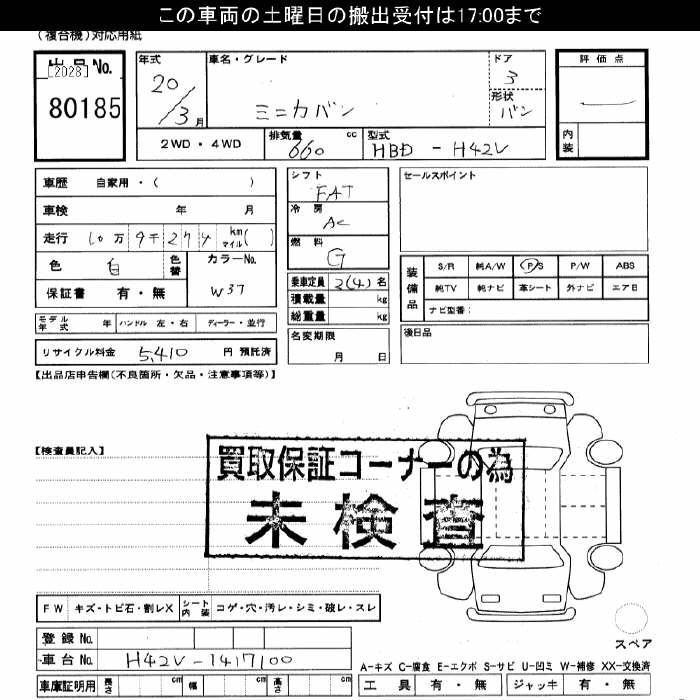 この車両の土曜日の搬出受付は17:00まで
(複合機)対応用紙
出品No.
[2028]
80185
年式
20/3月
車名・グレード
ミニカバン
ドア
3
形状
バン
評価点
内装
2WD・4WD
排気量
660 cc
型式
HBD - H42V
車歴 自家用・( )
車検 年 月
走行 10万 9千274 km マイル( )
色 白 色替
カラーNo.
W37
保証書 有・無
シフト
FAT
冷房
AC
燃料
G
乗車定員 2(4)名
積載量 kg
総重量 kg
セールスポイント
装備品
S/R 純A/W P/S P/W ABS
純TV 純ナビ 革シート 外ナビ エアB
ナビ型番:
モデル年式 年 ハンドル 左・右 ディーラー・並行
名変期限
月 日
後日品
リサイクル料金 5,410 円 預託済
【出品店申告欄(不良箇所・欠品・注意事項等)】
【検査員記入】
買取保証コーナーの為
未検査
FW キズ・トビ石・割レX シート内装 コゲ・穴・汚レ・シミ・破レ・スレ
登録No.
車台No. H42V-1417100
車庫証明用 長さ cm 幅 cm 高さ cm
スペア
A-キズ C-腐食 E-エクボ S-サビ U-凹ミ W-補修 XX-交換済
工具 有・無 ジャッキ 有・無